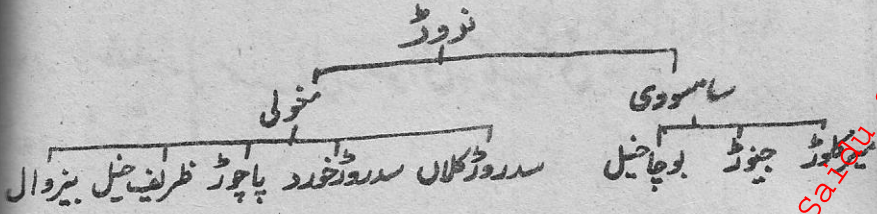 نوروڑ
ساسودی منولی
جنوڑ بوچا خیل سدروڑ کلاں سدروڑ خورد پاچوڑ ظریف خیل بیزوال
Saidu